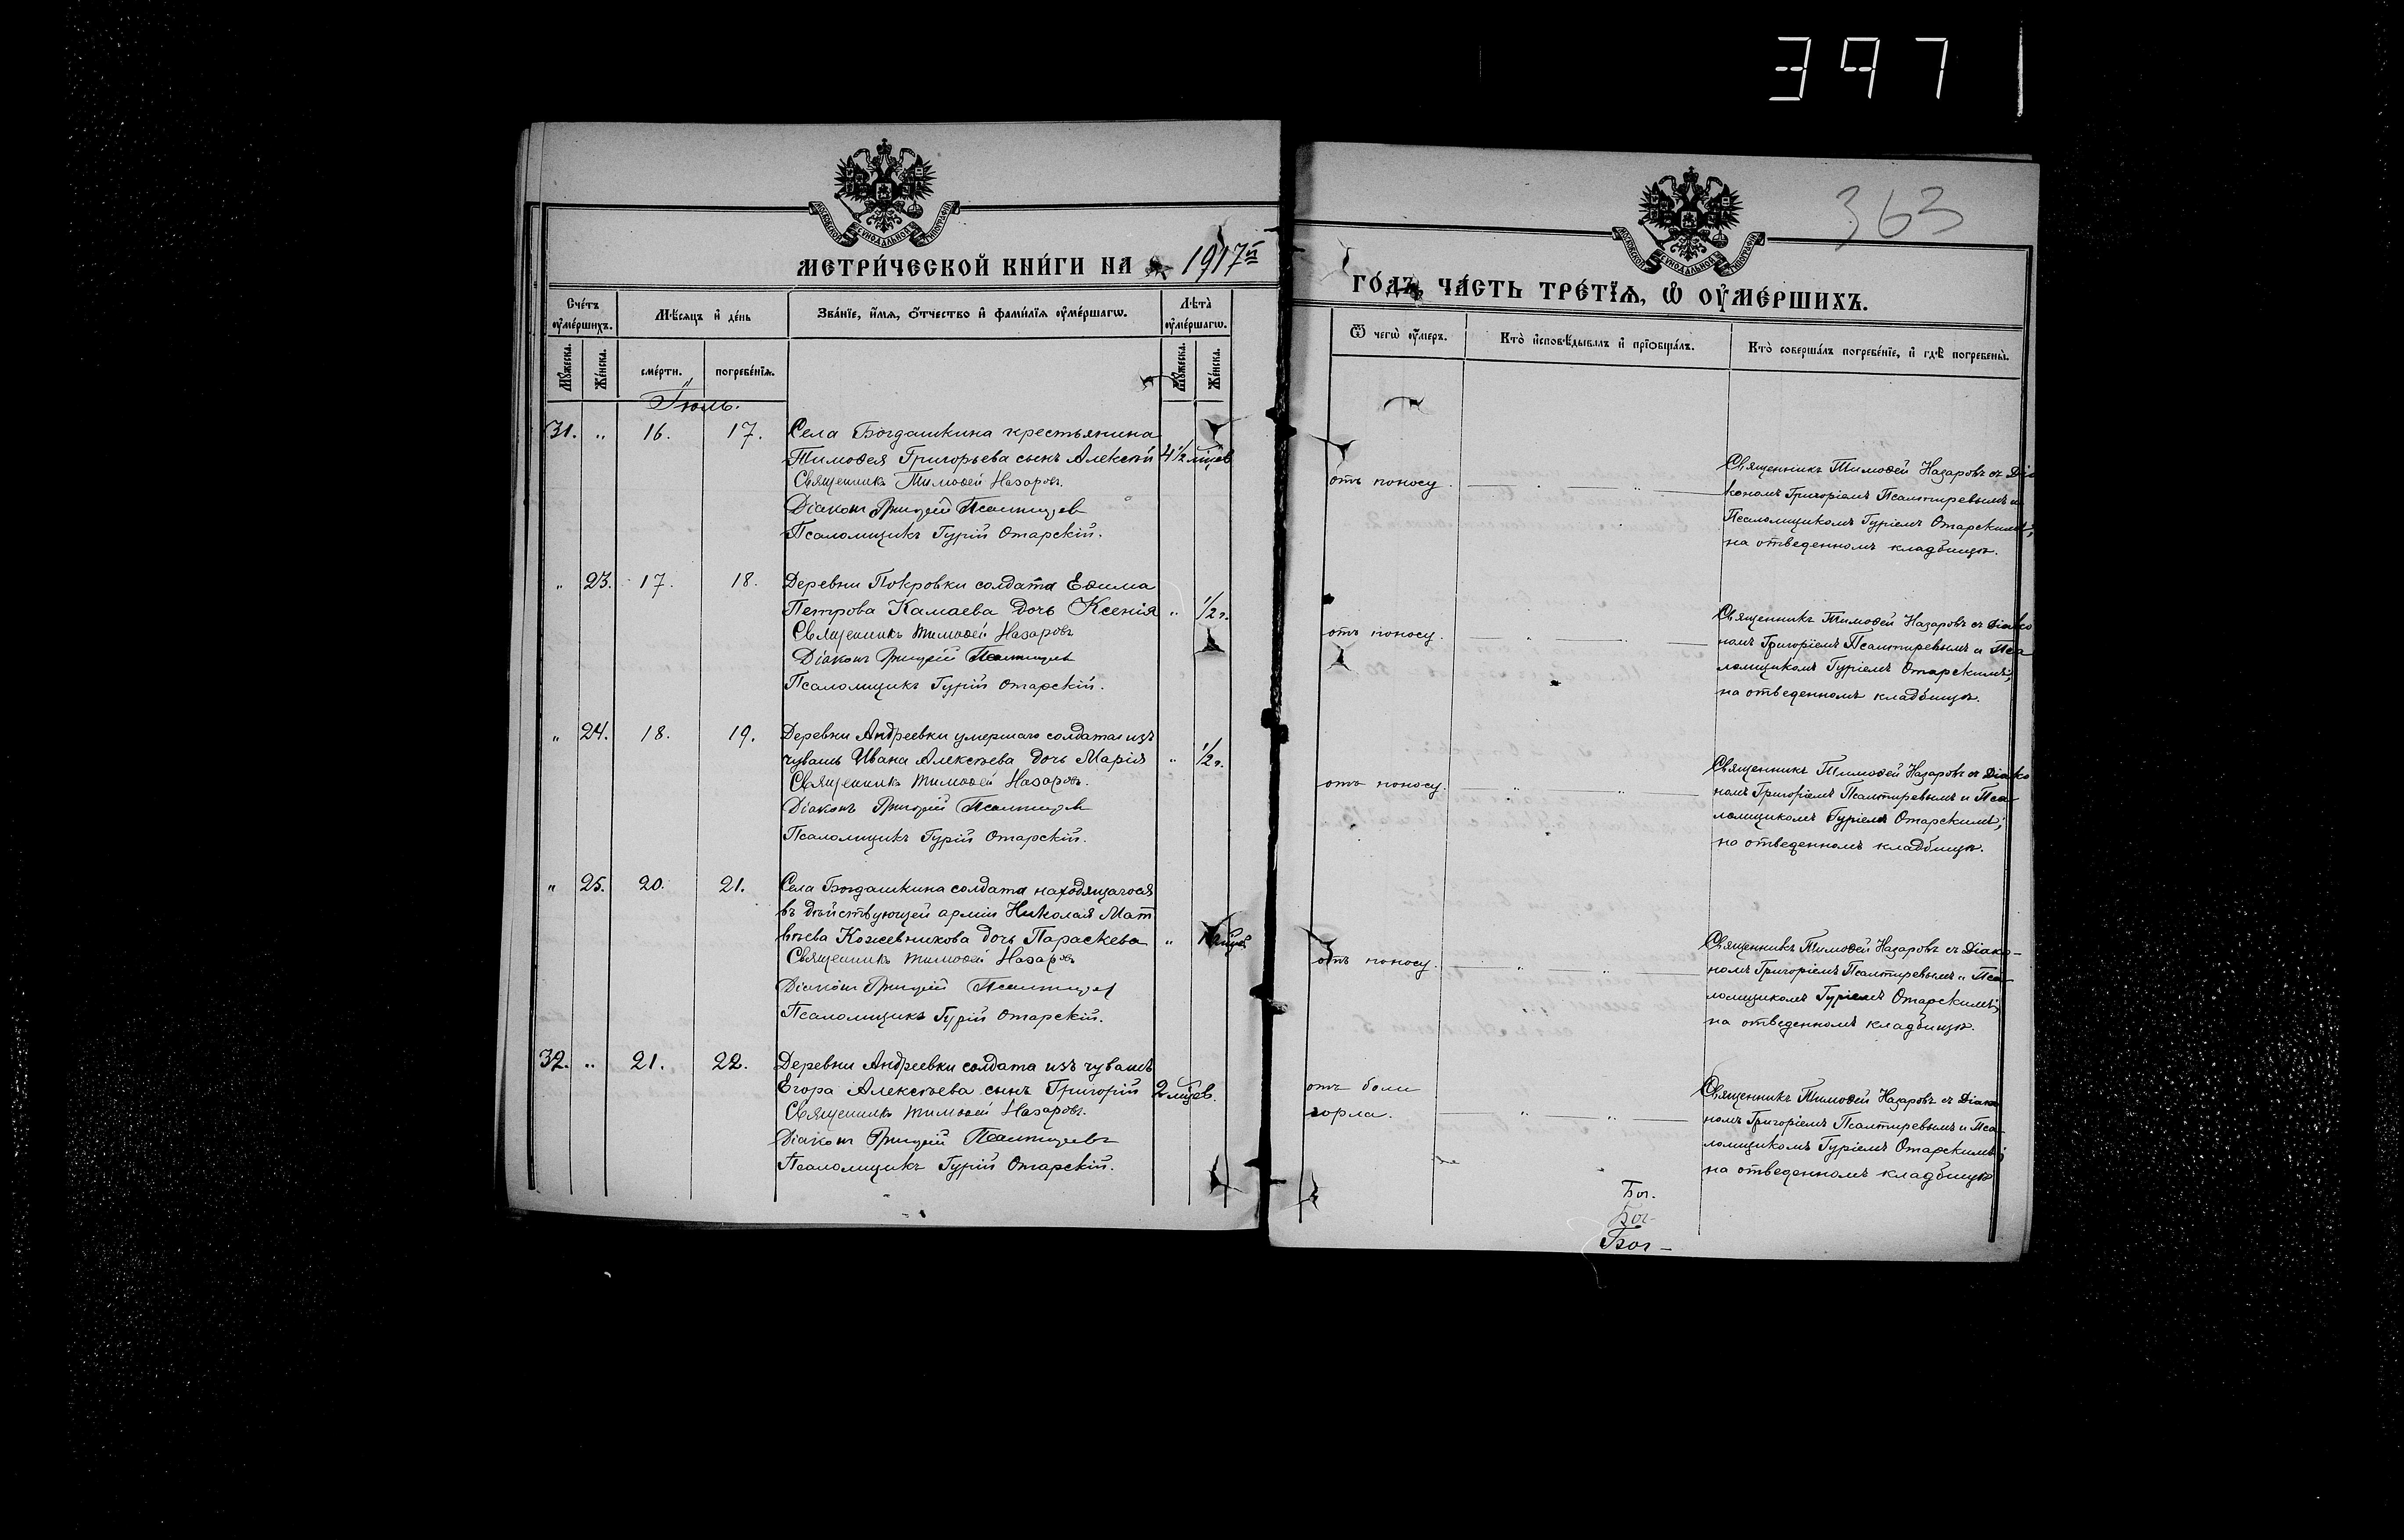 397
363
МОСКОВСКОЙ СѴНОДАЛЬНОЙ ТИПОГРАФІИ
МОСКОВСКОЙ СѴНОДАЛЬНОЙ ТИПОГРАФІИ
МЕТРИ́ЧЕСКОЙ КНИ́ГИ НА 1917й
ГО́ДЪ, ЧА́СТЬ ТРЕ́ТЇѦ, Ѡ҆ ОУ҆МЕ́РШИХЪ.
Сче́тъ оу҆ме́ршихъ.
Мѣ́сяцъ и҆ де́нь
Зва́нїе, и҆́мѧ, ѻ҆́тчество и҆ фами́лїѧ оу҆ме́ршагѡ.
Лѣ́та оу҆ме́ршагѡ.
Мꙋ́жеска.
Же́нска.
сме́рти.
погребе́нїѧ.
Мꙋ́жеска.
Же́нска.
Ѿ чегѡ̀ оу҆́меръ.
Кто̀ и҆сповѣ́дывалъ и҆ прїѻбща́лъ.
Кто̀ соверша́лъ погребе́нїе, и҆ гдѣ̀ погребены̀.
Іюль.
31. „ 16. 17. Села Богдашкина крестьянина
Тимоѳея Григорьева сынъ Алексѣй 4½ мцев
Священникъ Тимоѳей Назаровъ.
Діаконъ Григорій Псалтирев
Псаломщикъ Гурій Отарскій.
отъ поносу.
Священникъ Тимоѳей Назаровъ съ Діа
кономъ Григоріемъ Псалтиревымъ и
Псаломщикомъ Гуріемъ Отарскимъ;
на отведенномъ кладбищѣ.
„ 23. 17. 18. Деревни Покровки солдата Евѳима
Петрова Камаева дочь Ксенія „ ½ г.
Священникъ Тимоѳей Назаровъ
Діаконъ Григорій Псалтирев
Псаломщикъ Гурій Отарскій.
отъ поносу.
Священникъ Тимоѳей Назаровъ съ Діако
номъ Григоріемъ Псалтиревымъ и Пса
ломщикомъ Гуріемъ Отарскимъ;
на отведенномъ кладбищѣ.
„ 24. 18. 19. Деревни Андреевки умершаго солдата изъ
чувашъ Ивана Алексѣева дочь Марія „ ½ г.
Священникъ Тимоѳей Назаровъ.
Діаконъ Григорій Псалтирев
Псаломщикъ Гурій Отарскій.
отъ поносу.
Священникъ Тимоѳей Назаровъ съ Діако
номъ Григоріемъ Псалтиревымъ и Пса
ломщикомъ Гуріемъ Отарскимъ;
на отведенномъ кладбищѣ.
„ 25. 20. 21. Села Богдашкина солдата находящагося
въ дѣйствующей арміи Николая Мат
вѣева Кожевникова дочь Параскева „
Священникъ Тимоѳей Назаровъ
Діаконъ Григорій Псалтирев
Псаломщикъ Гурій Отарскій.
отъ поносу.
Священникъ Тимоѳей Назаровъ съ Діако-
номъ Григоріемъ Псалтиревымъ и Пса
ломщикомъ Гуріемъ Отарскимъ;
на отведенномъ кладбищѣ.
32. „ 21. 22. Деревни Андреевки солдата изъ чувашъ
Егора Алексѣева сынъ Григорій 2 мцев.
Священникъ Тимоѳей Назаровъ.
Діаконъ Григорій Псалтиревъ
Псаломщикъ Гурій Отарскій.
отъ боли
горла.
Священникъ Тимоѳей Назаровъ съ Діако
номъ Григоріемъ Псалтиревымъ и Пса
ломщикомъ Гуріемъ Отарскимъ;
на отведенномъ кладбищѣ
Бог.
Бог-
Бог-